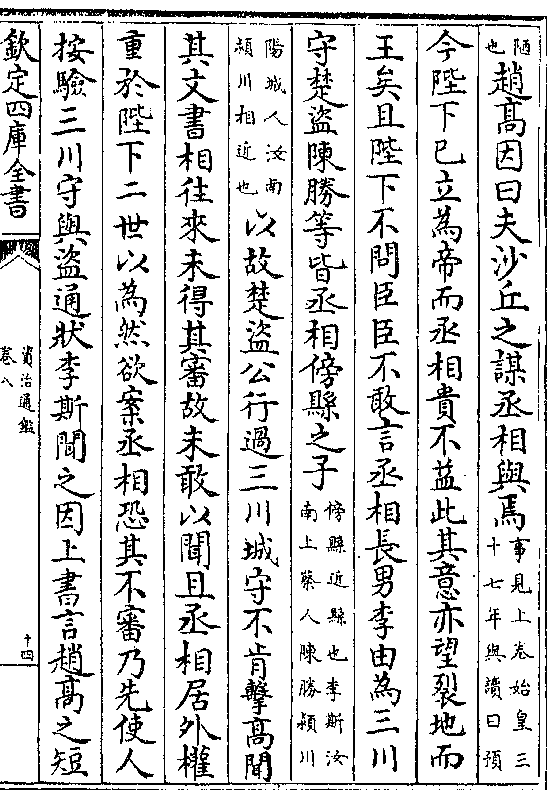 陋也趙髙因曰夫沙丘之謀丞相與焉事見上卷始皇三十七年與讀曰預
今陛下已立為帝而丞相貴不益此其意亦望裂地而
王矣且陛下不問臣臣不敢言丞相長男李由為三川
守楚盜陳勝等皆丞相傍縣之子傍縣近縣也李斯汝南上蔡人陳勝潁川
陽城人汝南潁川相近也以故楚盜公行過三川城守不肯擊髙聞
其文書相往來未得其審故未敢以聞且丞相居外權
重於陛下二世以為然欲案丞相恐其不審乃先使人
按驗三川守與盜通狀李斯聞之因上書言趙髙之短
欽定四庫全書
資治通鑑
卷八
十四